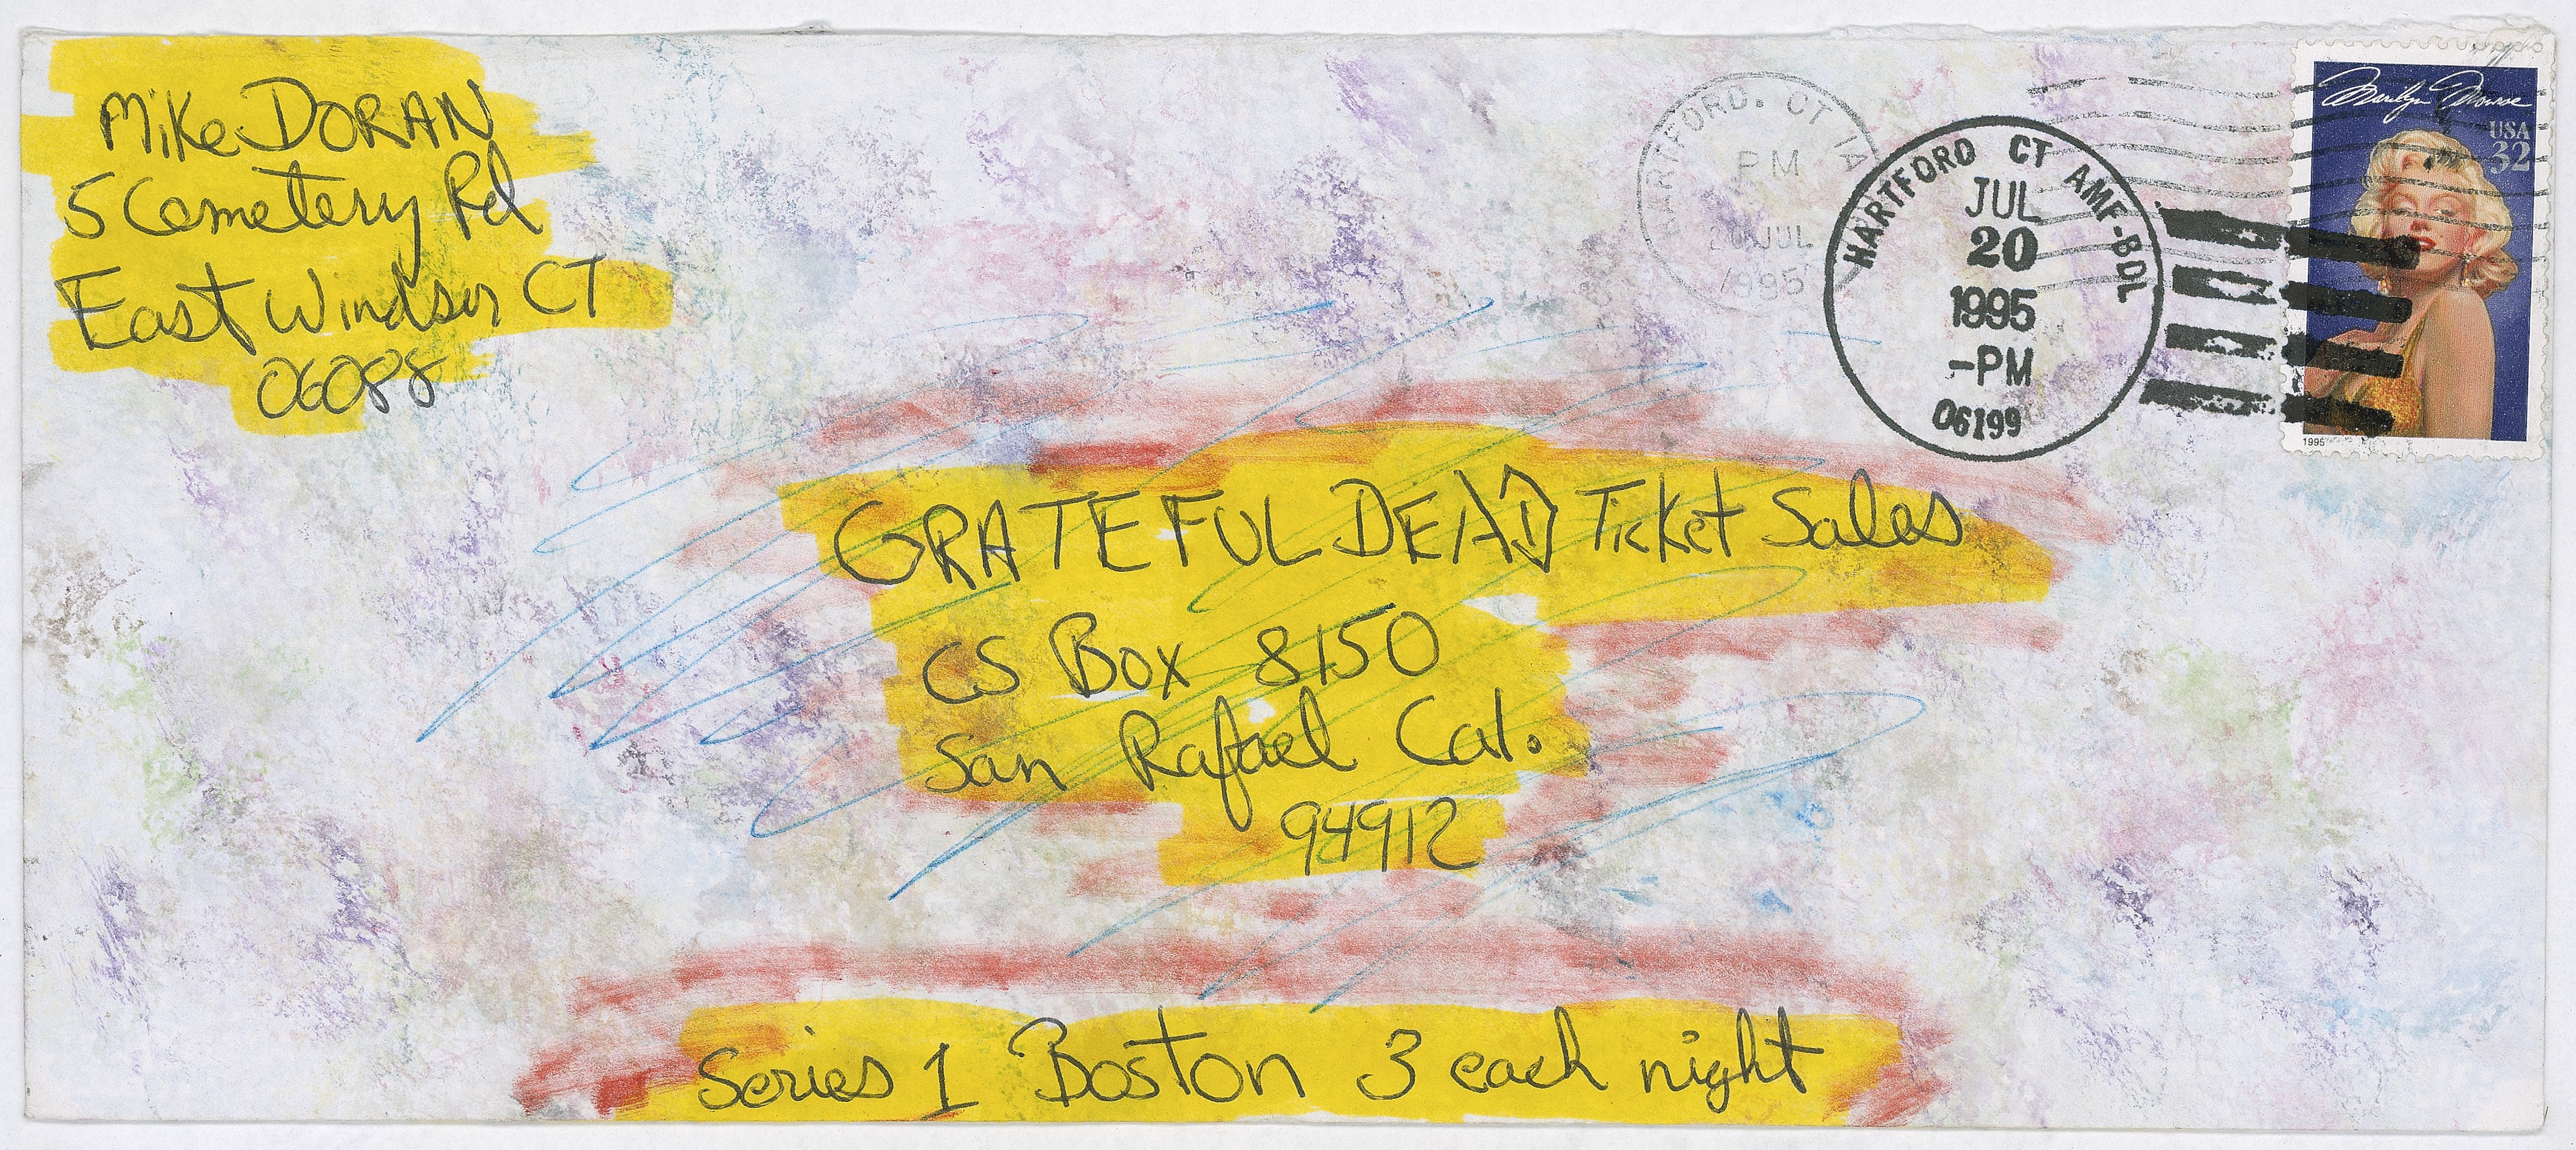 Mike DORAN
5 Cemetery Rd
East Windsor CT
06088
HARTFORD. CT 1A
PM
20 JUL
1995
HARTFORD CT AMF-BDL
JUL
20
1995
-PM
06199
Marilyn Monroe
USA
32
1995
GRATEFUL DEAD Ticket Sales
CS Box 8150
San Rafael Cal.
94912
Series 1 Boston 3 each night